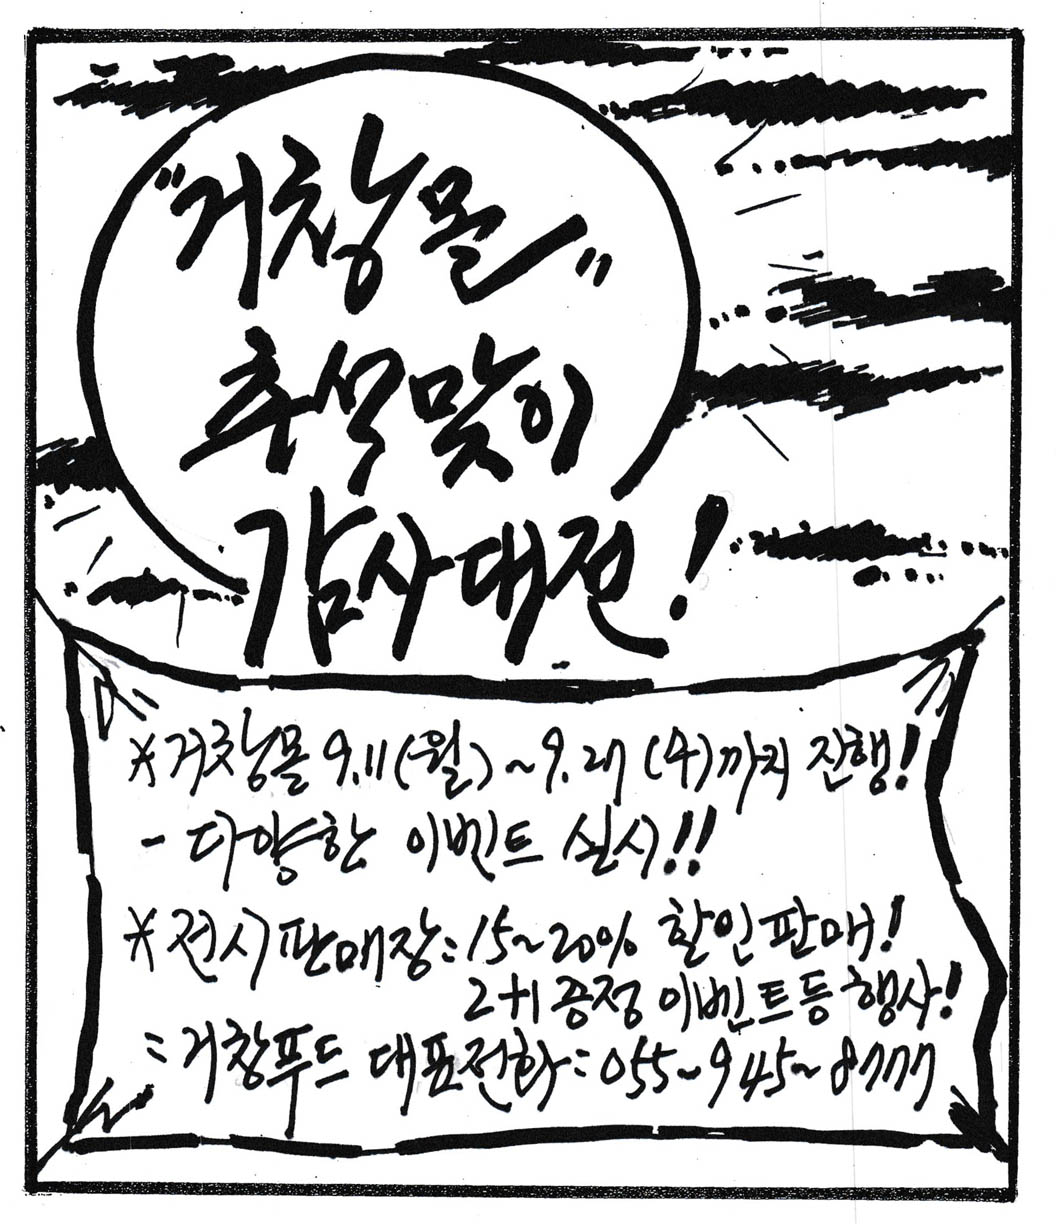 "거창몰"
추석맞이
감사대전!
※거창몰 9.11(월)~9.27(수)까지 진행!
- 다양한 이벤트 실시!!
※전시판매장: 15~20% 할인판매!
2+1 증정 이벤트등 행사!
= 거창푸드 대표전화: 055~945~8777